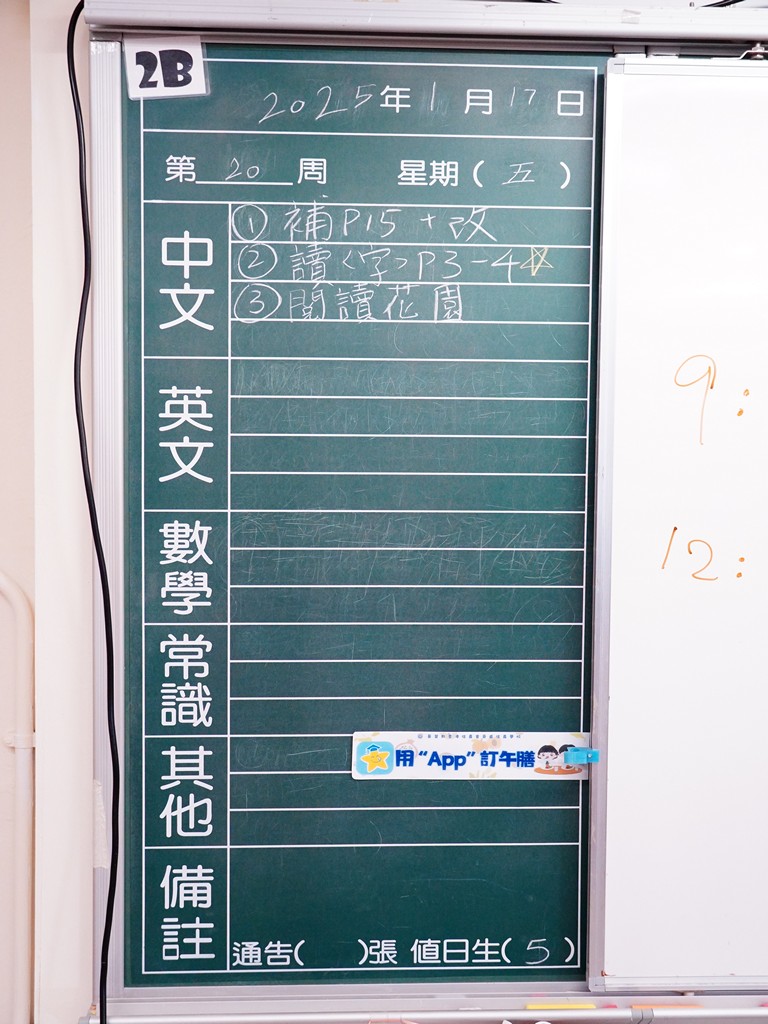 2B
2025年1月17日
第20周 星期(五)
中文
① 補P15 + 改
② 讀<字>P3-4☆
③ 閱讀花園
英文
數學
常識
其他
用“App”訂午膳
備註
通告( )張 值日生(5)
9:
12: